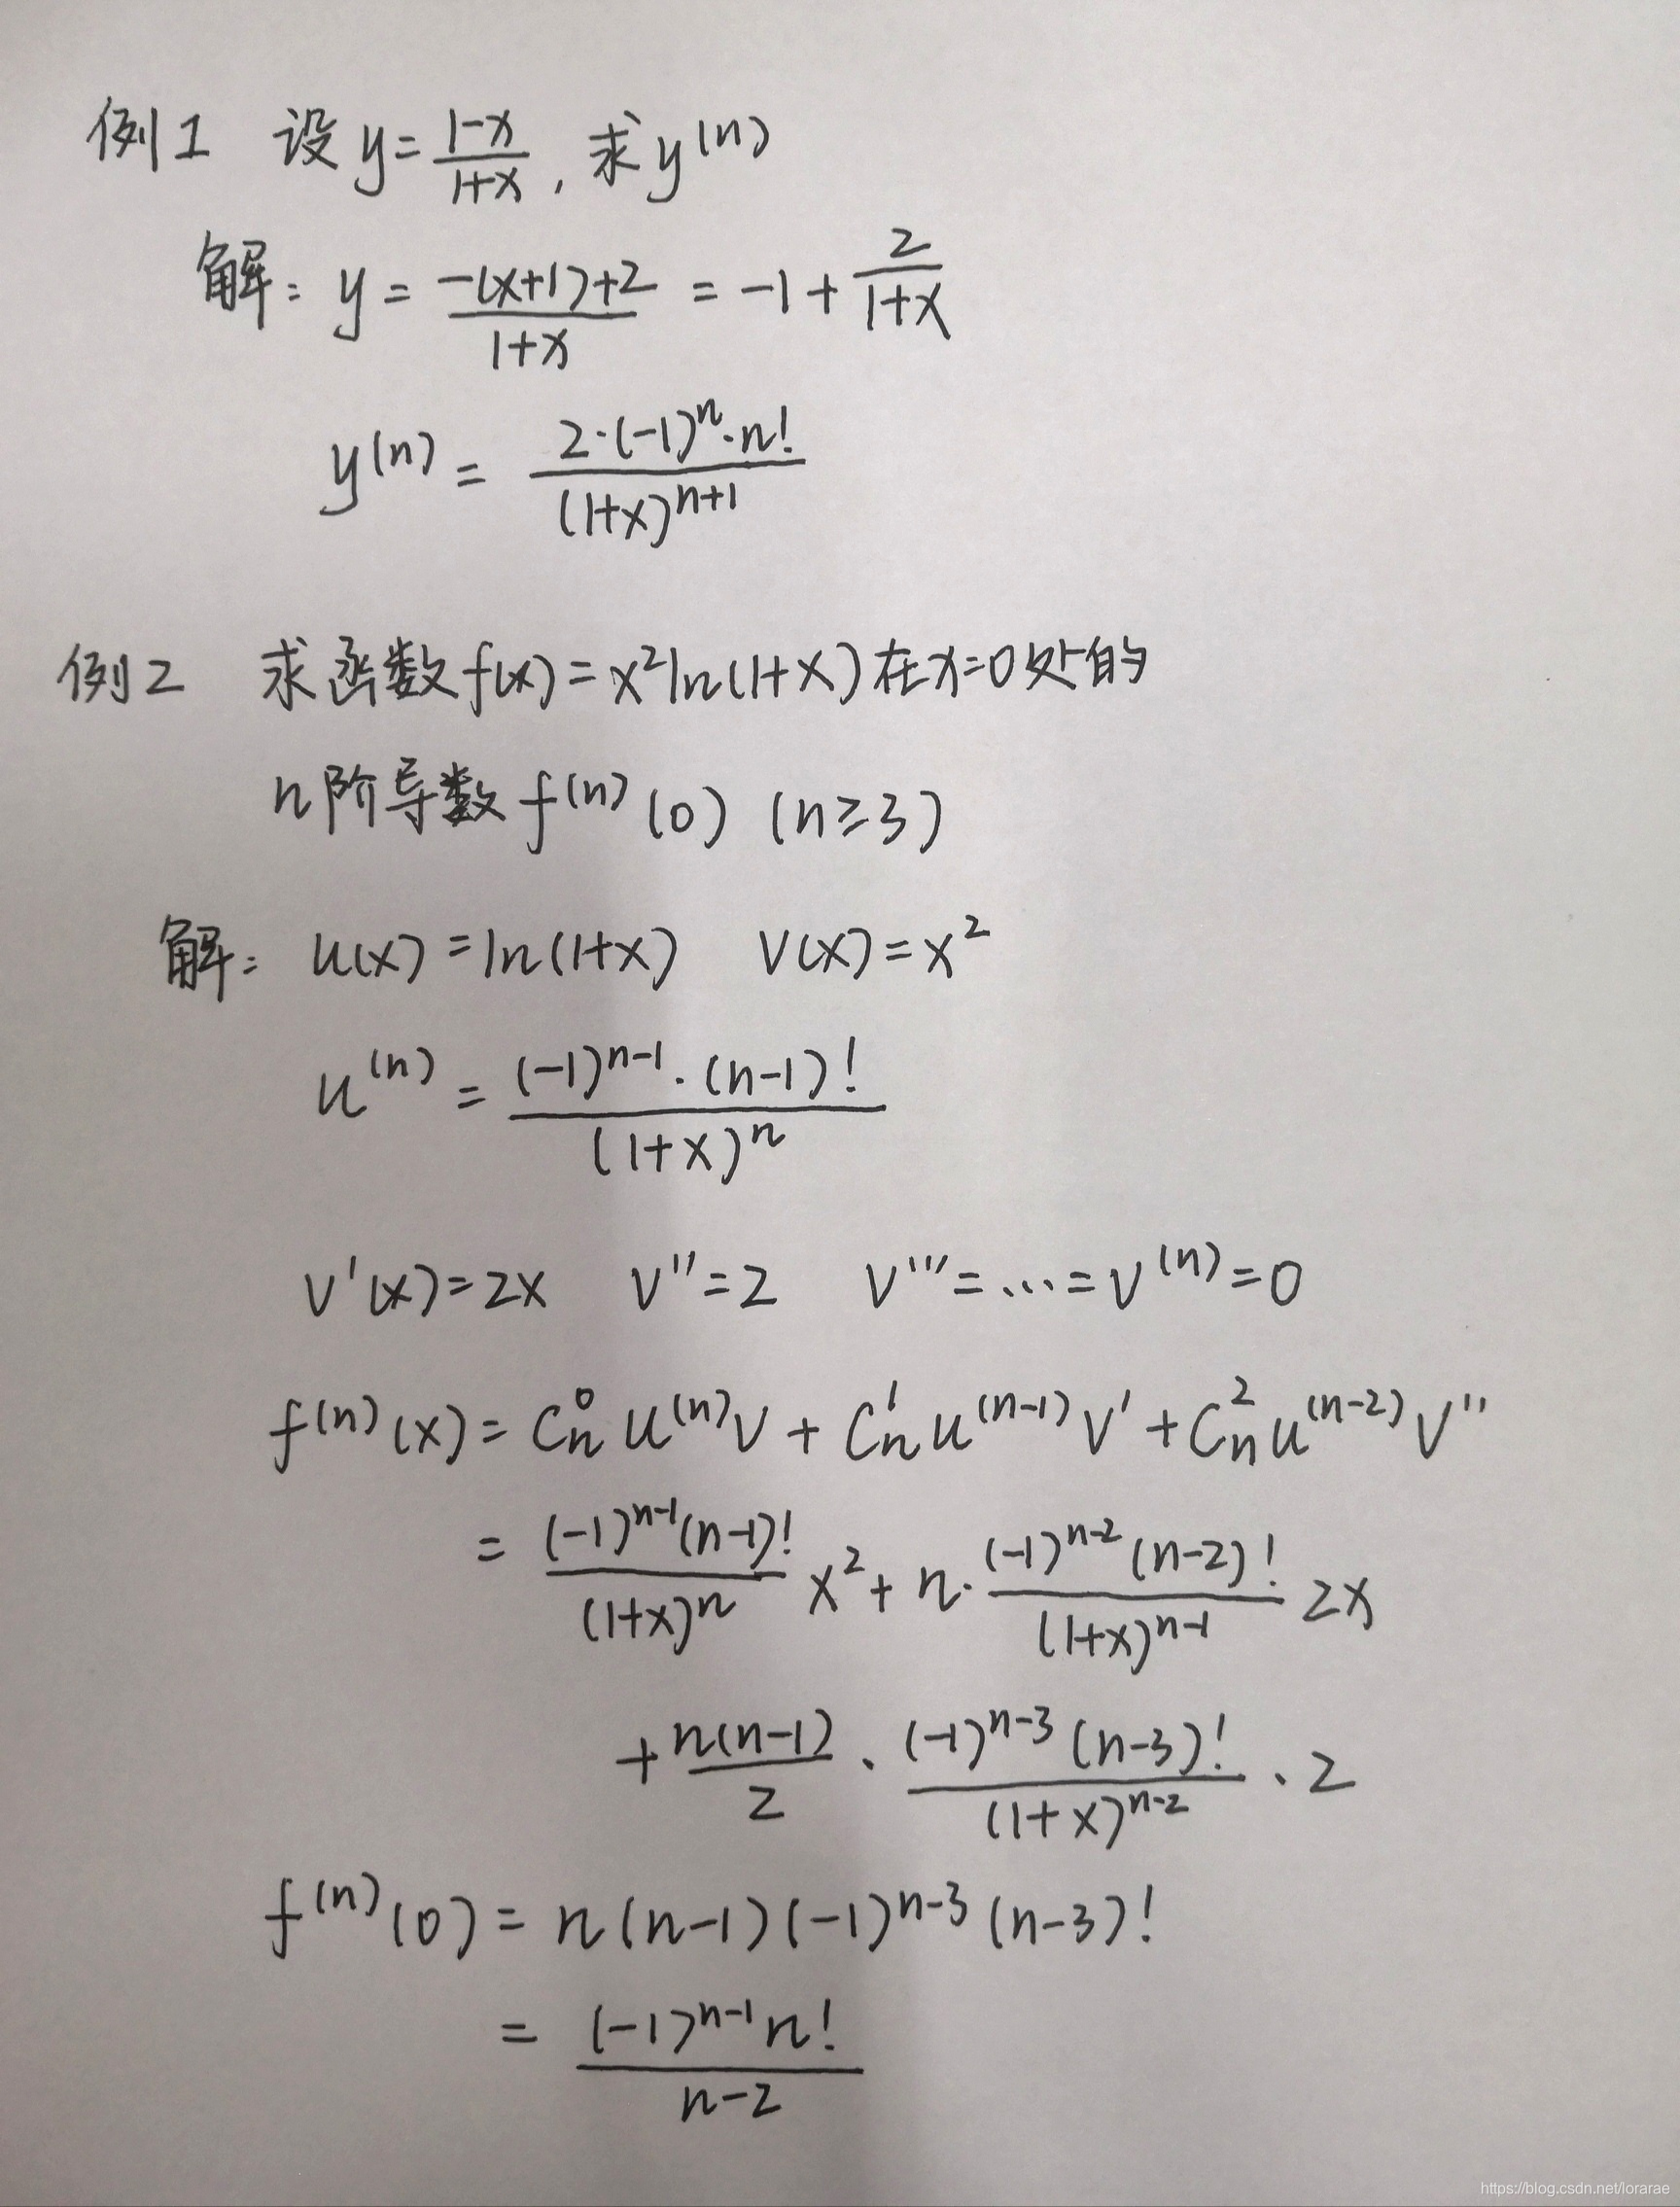 例1 设 y = \frac{1-x}{1+x}, 求 y^{(n)}
解: y = \frac{-(x+1)+2}{1+x} = -1 + \frac{2}{1+x}
y^{(n)} = \frac{2·(-1)^n·n!}{(1+x)^{n+1}}
例2 求函数 f(x) = x^2 ln(1+x) 在 x=0 处的
n阶导数 f^{(n)}(0) (n≥3)
解: u(x) = ln(1+x) v(x) = x^2
u^{(n)} = \frac{(-1)^{n-1}·(n-1)!}{(1+x)^n}
v'(x) = 2x v'' = 2 v''' = … = v^{(n)} = 0
f^{(n)}(x) = C_n^0 u^{(n)} v + C_n^1 u^{(n-1)} v' + C_n^2 u^{(n-2)} v''
= \frac{(-1)^{n-1}(n-1)!}{(1+x)^n} x^2 + n·\frac{(-1)^{n-2}(n-2)!}{(1+x)^{n-1}} 2x
+ \frac{n(n-1)}{2} · \frac{(-1)^{n-3}(n-3)!}{(1+x)^{n-2}} · 2
f^{(n)}(0) = n(n-1)(-1)^{n-3}(n-3)!
= \frac{(-1)^{n-1} n!}{n-2}
https://blog.csdn.net/lorarae